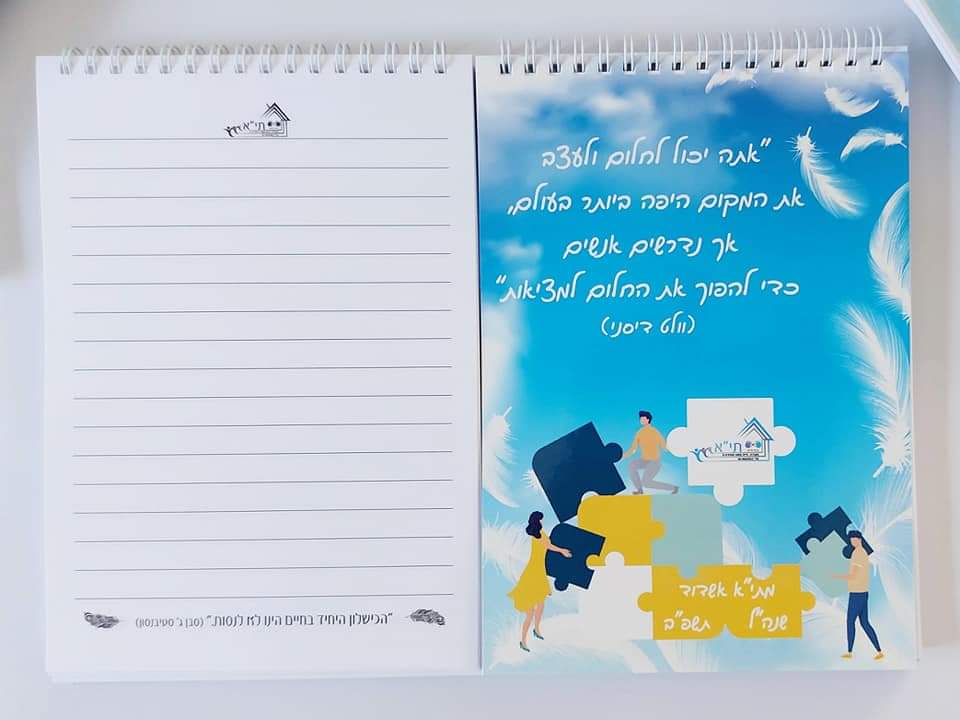 תי"א
"הכישלון היחיד בחיים הינו לא לנסות." (סבן ג' סטיבנסון)
"אתה יכול לחלום ולעצב
את המקום היפה ביותר בעולם,
אך נדרשים אנשים
כדי להפוך את החלום למציאות"
(וולט דיסני)
תי"א
מתי"א אשדוד
שנה"ל תשפ"ב